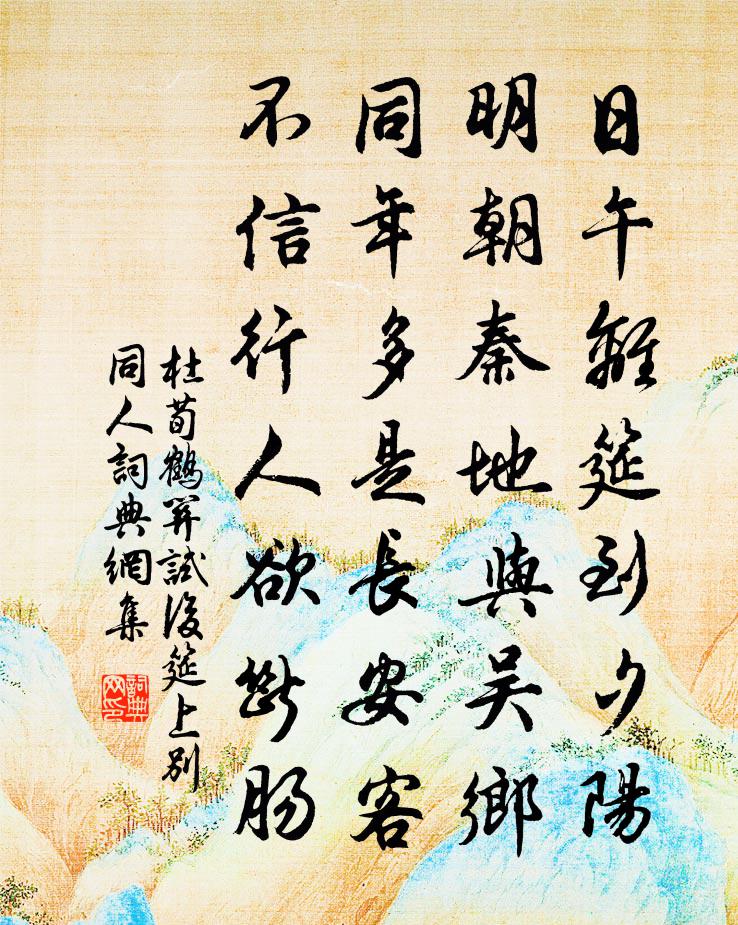 日午離筵到夕陽
明朝秦地與吴鄉
同年多是長安客
不信行人欲斷腸
杜荀鶴關試後筵上別
同人詞典網集
詞典网印